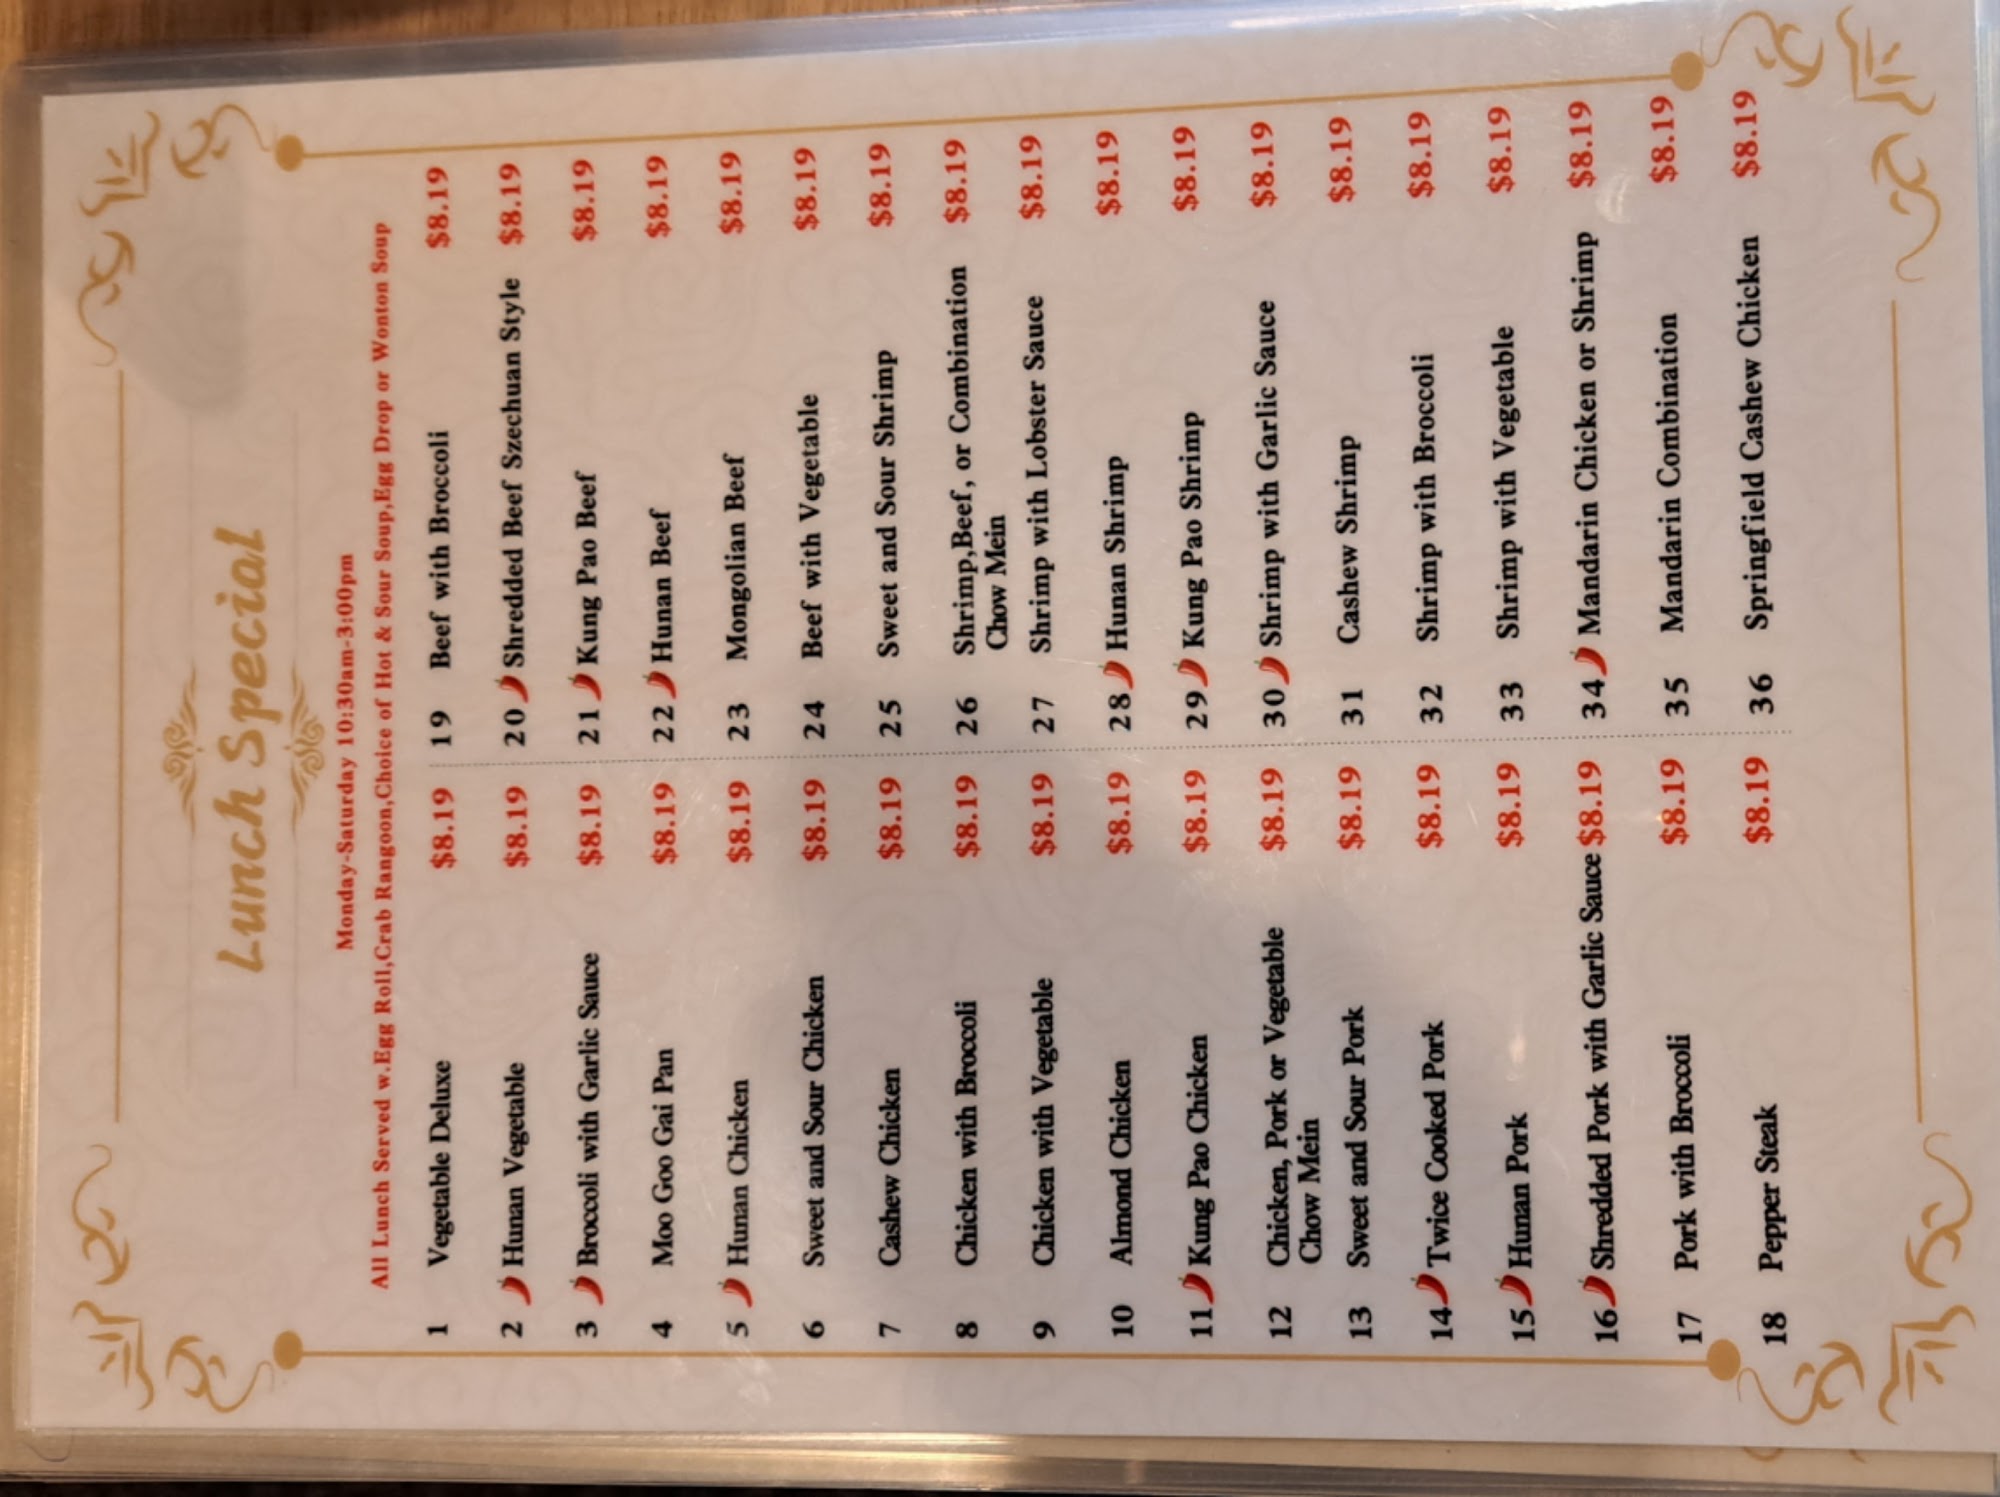 Lunch Special
Monday-Saturday 10:30am-3:00pm
All Lunch Served w.Egg Roll,Crab Rangoon,Choice of Hot & Sour Soup,Egg Drop or Wonton Soup
1 Vegetable Deluxe $8.19
2 Hunan Vegetable $8.19
3 Broccoli with Garlic Sauce $8.19
4 Moo Goo Gai Pan $8.19
5 Hunan Chicken $8.19
6 Sweet and Sour Chicken $8.19
7 Cashew Chicken $8.19
8 Chicken with Broccoli $8.19
9 Chicken with Vegetable $8.19
10 Almond Chicken $8.19
11 Kung Pao Chicken $8.19
12 Chicken, Pork or Vegetable $8.19
Chow Mein
13 Sweet and Sour Pork $8.19
14 Twice Cooked Pork $8.19
15 Hunan Pork $8.19
16 Shredded Pork with Garlic Sauce $8.19
17 Pork with Broccoli $8.19
18 Pepper Steak $8.19
19 Beef with Broccoli $8.19
20 Shredded Beef Szechuan Style $8.19
21 Kung Pao Beef $8.19
22 Hunan Beef $8.19
23 Mongolian Beef $8.19
24 Beef with Vegetable $8.19
25 Sweet and Sour Shrimp $8.19
26 Shrimp,Beef, or Combination $8.19
Chow Mein
27 Shrimp with Lobster Sauce $8.19
28 Hunan Shrimp $8.19
29 Kung Pao Shrimp $8.19
30 Shrimp with Garlic Sauce $8.19
31 Cashew Shrimp $8.19
32 Shrimp with Broccoli $8.19
33 Shrimp with Vegetable $8.19
34 Mandarin Chicken or Shrimp $8.19
35 Mandarin Combination $8.19
36 Springfield Cashew Chicken $8.19